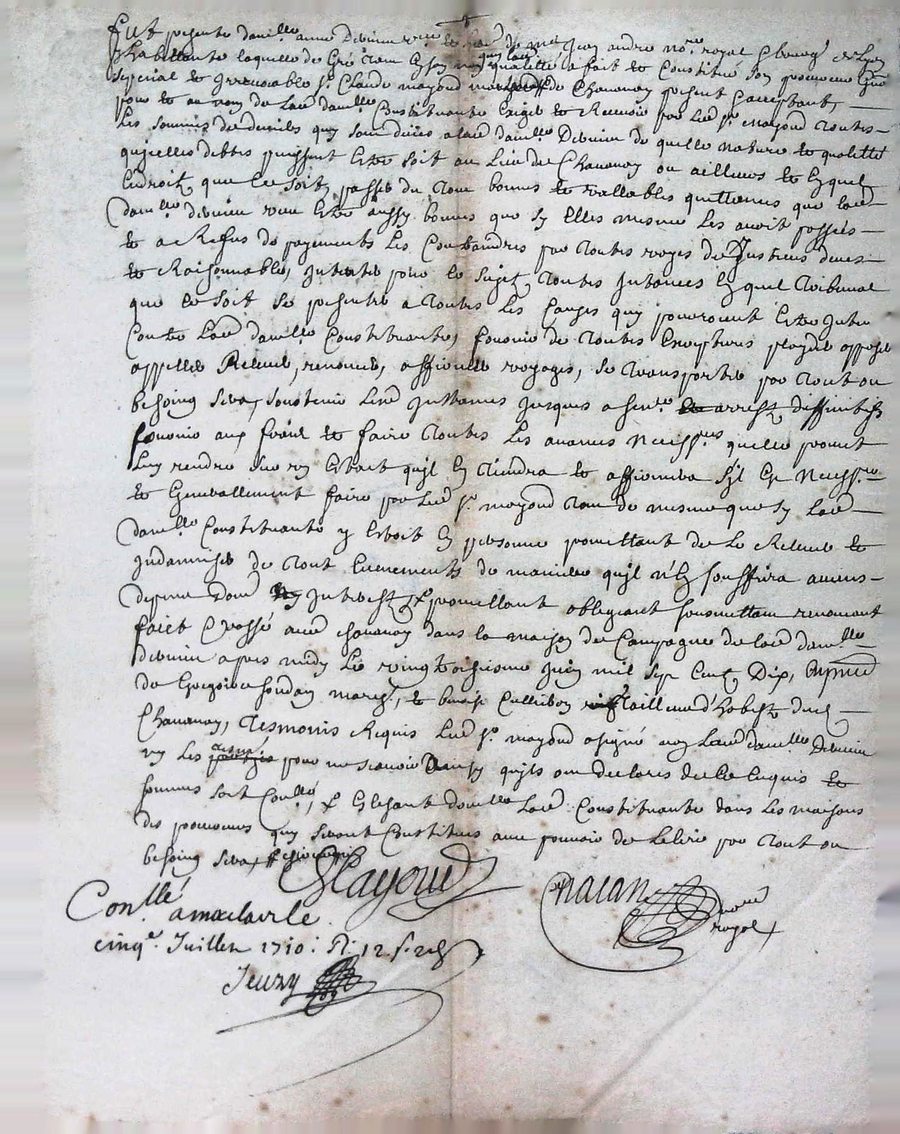 fut presente dam.lle anne Devinine ve.ve de feu S.r me Jean andre no.re royal & bourg. de Lyon
y habittante laquelle de gré a fait et Constitué son procureur gnal
special et Irrevocable s.r Claude mayoud march de Chavanay present & acceptant
pour et au nom de lad dam.lle Constituante Exiger et Recevoir par led s.r mayoud toutes
les sommes de deniers quy sont deües a lad dam.lle Devinine de quelle nature et qualitté
qu'icelles debtes puissent Estre soit au Lieu de Chavanay ou ailleurs et Enquel
Endroit que Ce soit, passer du tout bonnes et vallables quittances que lad
dam.lle devinine veut Estre aussy bonnes que sy Elles mesme les avoit passés
et a Refus de payements les Contraindre par toutes voyes de Justices deues
et Raisonnables, Intenter pour le sujet, toutes Instances En quel tribunal
que Ce soit se presenter a toutes les Causes quy pourroient Estre Inten
Contre Lad dam.lle Constituante, fournir de toutes Exceptions playder opposer
appeller Relever, renoncer, affirmer voyages, se transporter par tout ou
besoing sera, soustenir Lesd Instances Jusques a sen.ce et arrest diffinitifs
fournir aux fraix et faire toutes les avances necess.res quelle promet
Luy rendre sur Estat qu'il En tiendra et affirmera S'il Est necess.re
et Generallement faire par led s.r mayoud tout de mesme que sy Lad
dam.lle Constituante y Estoit En personne promettant de le Relever et
Indamniser de tout Evenements de maniere qu'il n'En souffrira aucuns
depens dom Interests, & promettant obligeant soumettant renonçant
faict & passé aud chavanay dans la maison de Campagne de lad dam.lle
devinine apres midy Le vingt troisieme Juin mil sept Cent Dix, En presence
de Gregoire soudan march.t, et benoist Cullibon tailleur d'habits dud
Chavanay, tesmoins Requis Led s.r mayoud a signé non Lad dam.lle Devinine
ny les tesmoins pour ne scavoir ainsy qu'ils ont declares de Ce Enquis et
sommés soit Con.llé, & Elisant dom.lle lad Constituante dans les maisons
des procureurs quy seront Constitues avec pouvoir de Eslire par tout ou
besoing sera,
Mayoud
Chacan no.re royal
Con.llé a maclas le
cinq.e Juillet 1710. R. 12 s. 2 d
Jeury